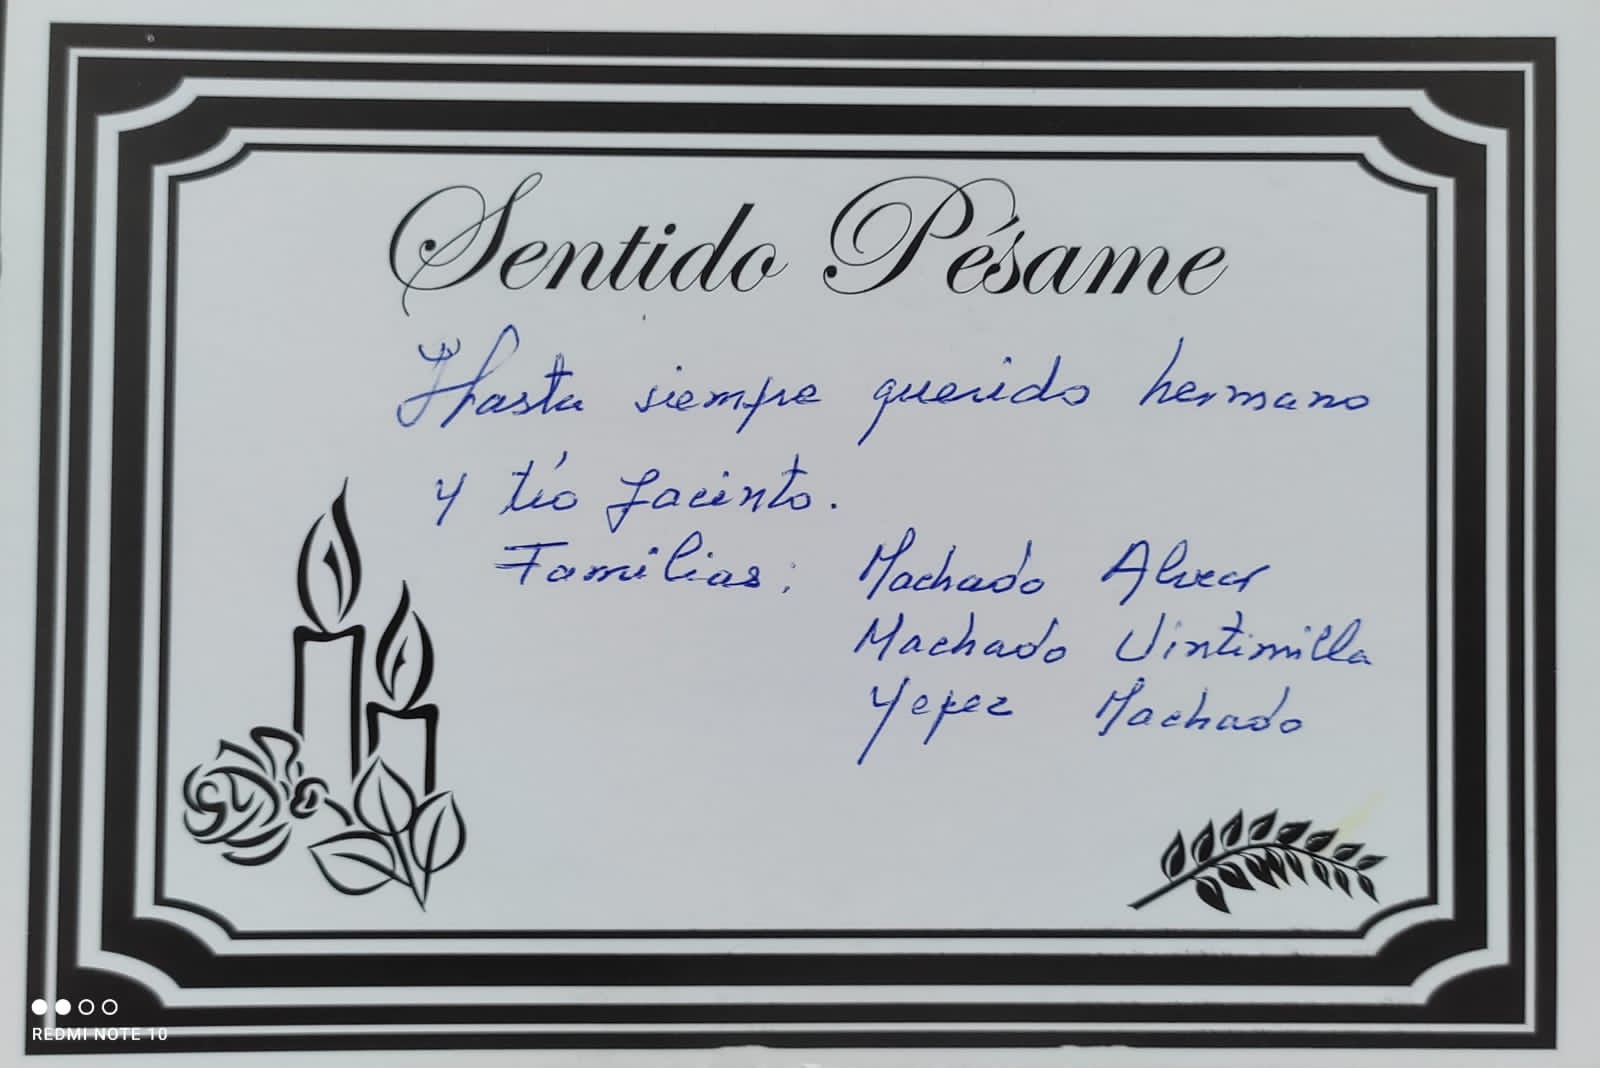 Sentido Pésame
Hasta siempre querido hermano
y tío Jacinto.
Familias: Machado Alvear
Machado Vintimilla
Yepez Machado
REDMI NOTE 10